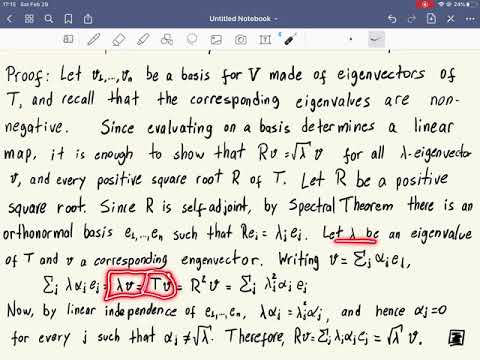 17:15 Sat Feb 29
24%
Untitled Notebook
Proof: Let v₁,...,vₙ be a basis for V made of eigenvectors of
T, and recall that the corresponding eigenvalues are non-
negative. Since evaluating on a basis determines a linear
map, it is enough to show that Rv=√λ v for all λ-eigenvector
v, and every positive square root R of T. Let R be a positive
square root. Since R is self-adjoint, by Spectral Theorem there is an
orthonormal basis e₁,...,eₙ such that Reᵢ = λⱼeᵢ. Let λ be an eigenvalue
of T and v a corresponding engenvector. Writing v=Σⱼ αⱼeⱼ,
Σⱼ λαⱼeⱼ = λv = Tv = R²v = Σⱼ λⱼ²αⱼeⱼ
Now, by linear independence of e₁,...,eₙ, λαⱼ = λⱼ²αⱼ, and hence αⱼ=0
for every j such that αⱼ≠√λ. Therefore, Rv=Σⱼ λⱼαⱼeⱼ = √λ v.